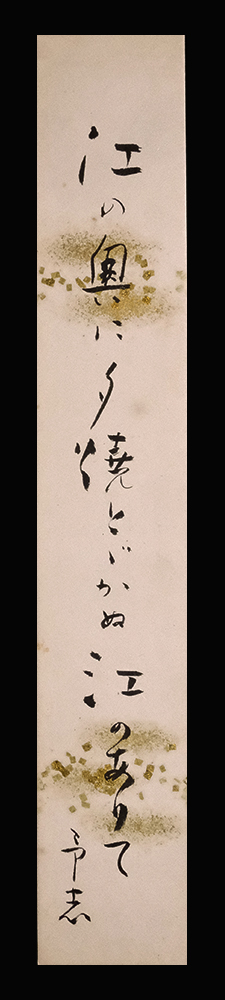 江の奥に夕焼とゞかぬ江のありて
予志